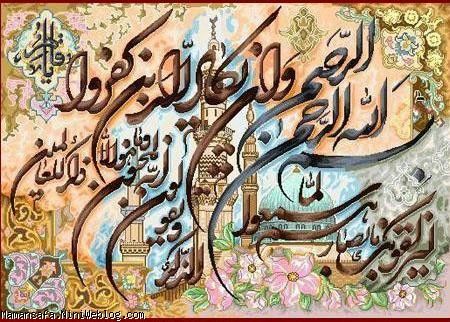 بسم الله الرحمن الرحیم
وان یکاد الذین کفروا
لیزلقونک بابصارهم لما سمعوا
الذکر و یقولون
انه لمجنون و ما هو الا
ذکر للعالمین
Mamansafa.NiniWeblog.com